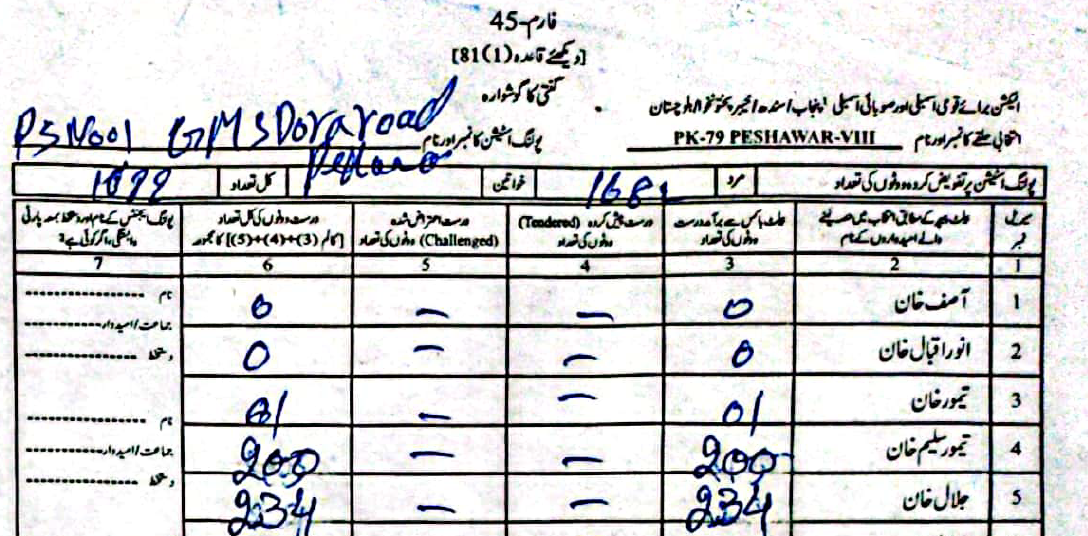 فارم-45
[دیکھئے قاعدہ (1)81]
گنتی کا گوشوارہ
الیکشن برائے قومی اسمبلی اور صوبائی اسمبلی پنجاب/سندھ/خیبر پختونخوا/بلوچستان
انتخابی حلقے کا نمبر اور نام PK-79 PESHAWAR-VIII پولنگ اسٹیشن کا نمبر اور نام PS No01 GMS Dora road
پولنگ اسٹیشن پر تفویض کردہ ووٹوں کی تعداد مرد خواتین کل تعداد
سیریل نمبر بیلٹ پیپر کے مطابق انتخاب میں حصہ لینے والے امیدواروں کے نام بیلٹ باکس سے برآمد درست ووٹوں کی تعداد درست پیش کردہ (Tendered) ووٹوں کی تعداد درست اعتراض شدہ (Challenged) ووٹوں کی تعداد درست ووٹوں کی کل تعداد [کالم (3)+(4)+(5)] کا مجموعہ
1 2 3 4 5 6 7
1 آصف خان 0 — — 0
نام
جماعت/امیدوار
2 انور اقبال خان 0 — — 0
دستخط
3 تیمور خان 01 — — 01
نام
4 تیمور سلیم خان 200 — — 200
جماعت/امیدوار
دستخط
5 جلال خان 234 — — 234